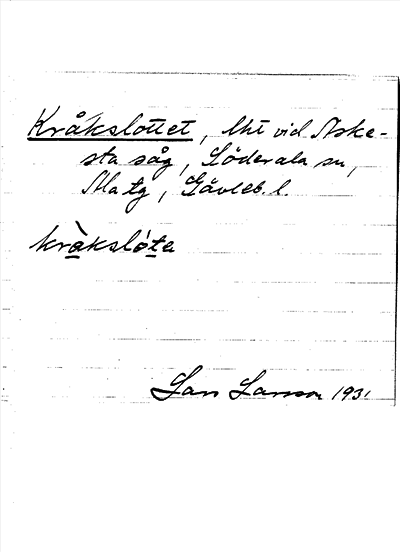 Kråkslottet, lht vid Aske-
sta såg, Söderala sn,
Ala tg, Gävleb. l.
kràkslóta
Lars Larsson 1931